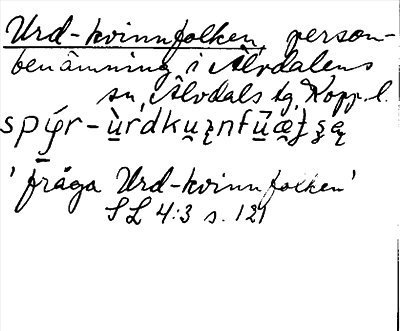 Urd-kvinnfolken, person-
benämning i Älvdalens
sn, Älvdals tg, Kopp. l.
'fråga Urd-kvinnfolken'
SL 4:3 s. 121